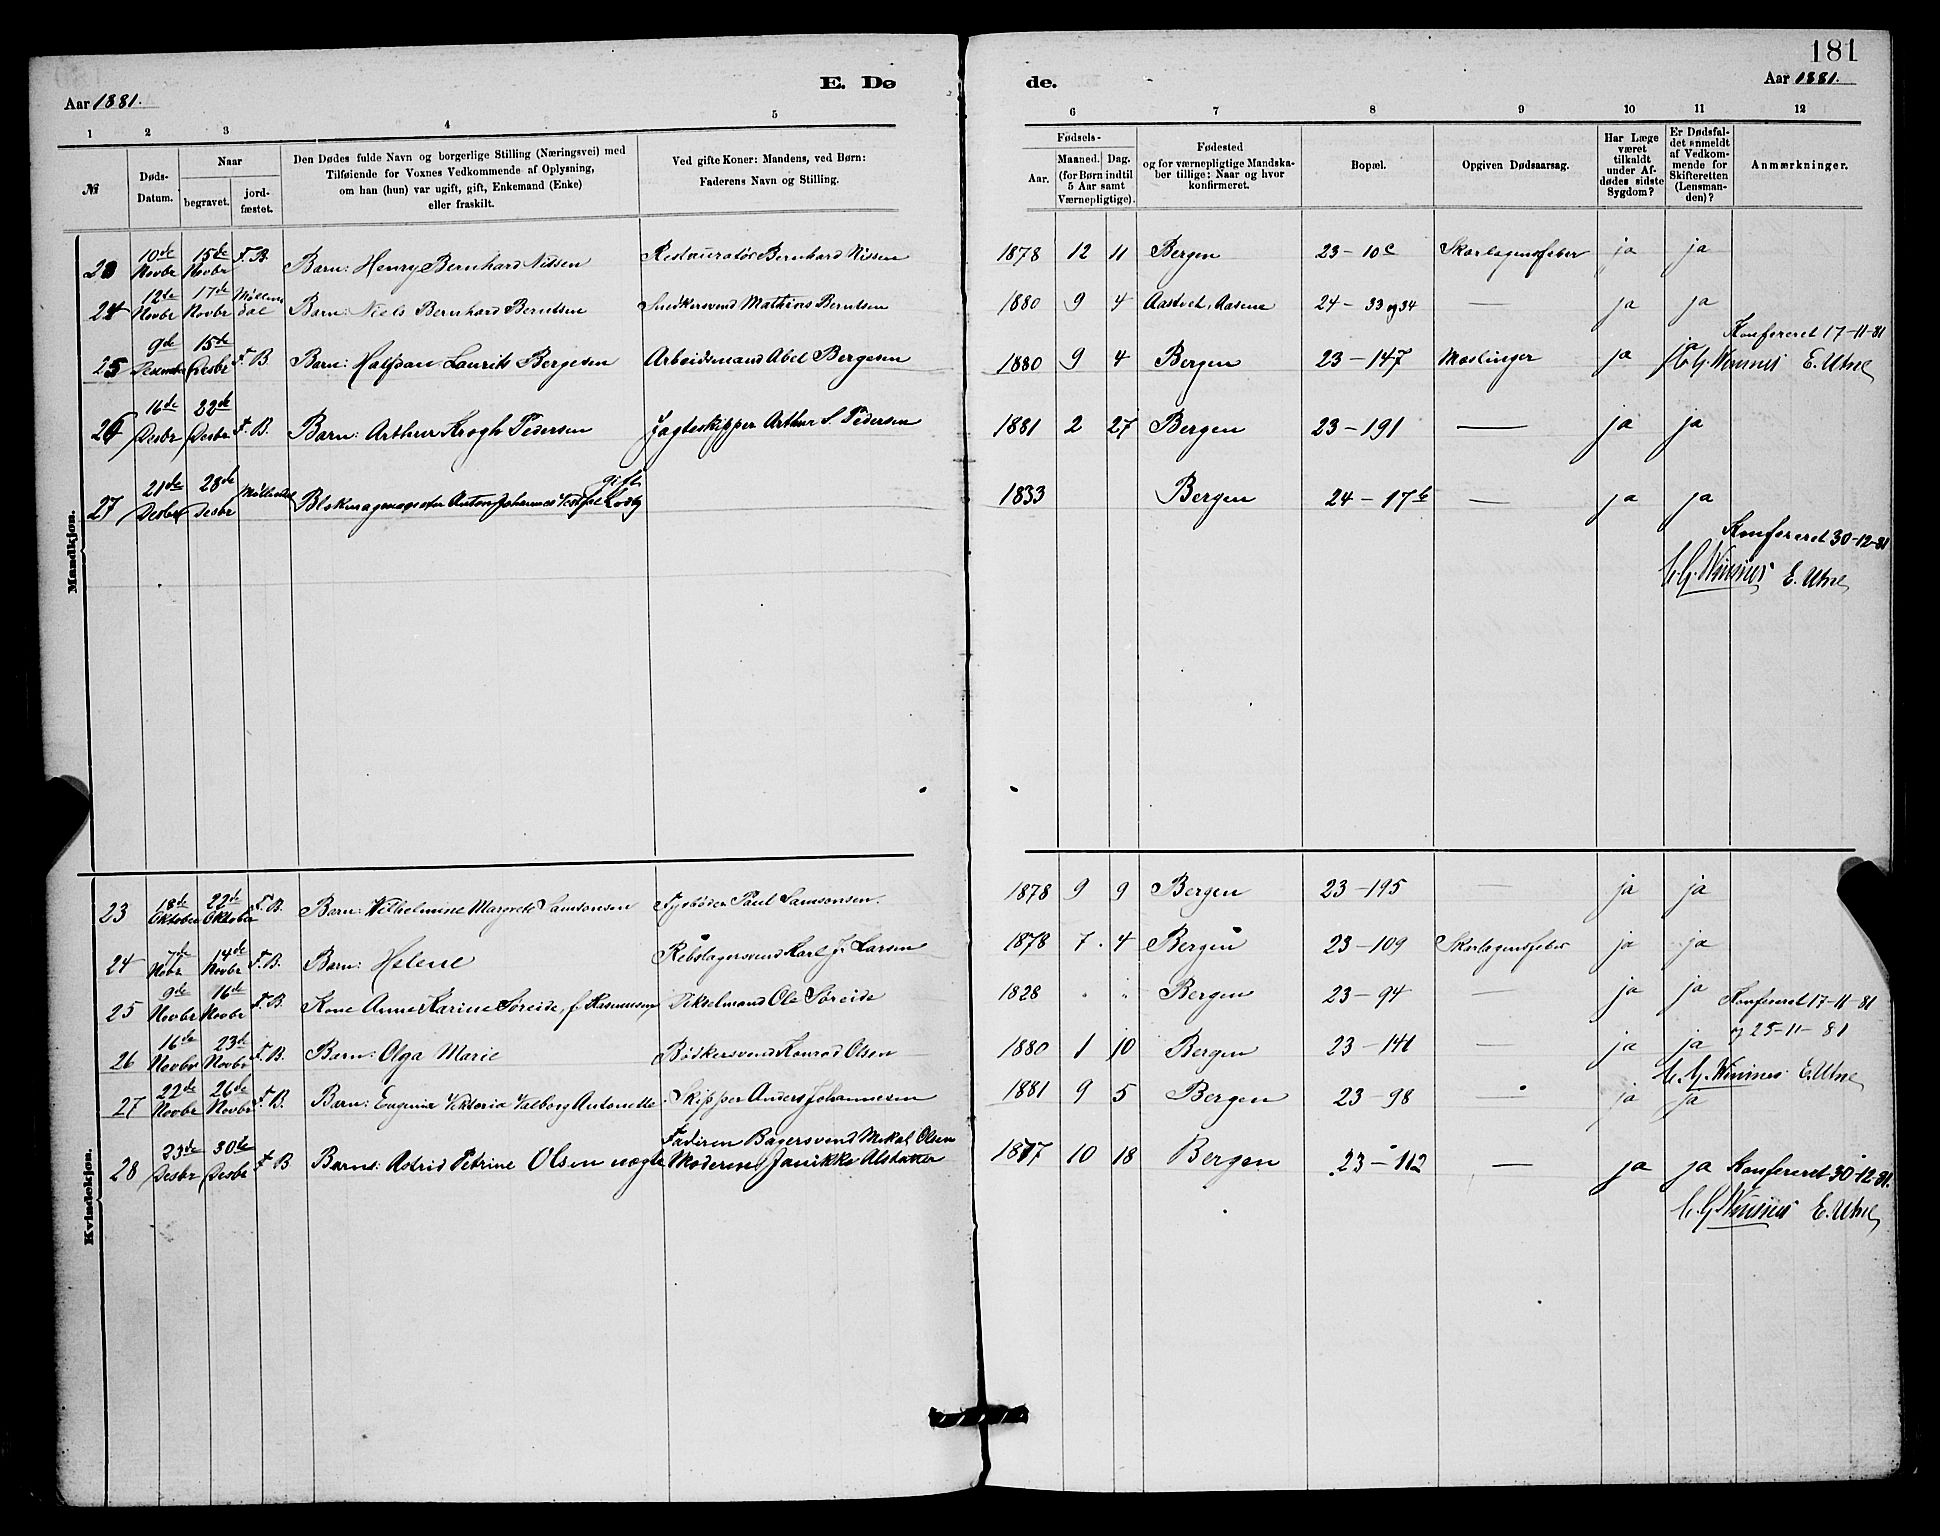 181
E. Dø de.
Aar 1881.
Aar 1881.
1 2 3 4 5 6 7 8 9 10 11 12
№
Døds-Datum.
Naar
begravet.
jord-fæstet.
Den Dødes fulde Navn og borgerlige Stilling (Næringsvei) med
Tilføiende for Voxnes Vedkommende af Oplysning,
om han (hun) var ugift, gift, Enkemand (Enke)
eller fraskilt.
Ved gifte Koner: Mandens, ved Børn:
Faderens Navn og Stilling.
Fødsels-
Aar.
Maaned. Dag.
(for Børn indtil
5 Aar samt
Værnepligtige).
Fødested
og for værnepligtige Mandska-
ber tillige: Naar og hvor
konfirmeret.
Bopæl.
Opgiven Dødsaarsag.
Har Læge
været
tilkaldt
under Af-
dødes sidste
Sygdom?
Er Dødsfal-
det anmeldt
af Vedkom-
mende for
Skifteretten
(Lensman-
den)?
Anmærkninger.
Mandkjøn.
10de Novbr 15de Novbr F.B. Barn: Henry Bernhard Nissen Restauratør Bernhard Nissen 1878 12 11 Bergen 23-10c Skarlagensfeber ja ja
24 12te Novbr 17de Novbr Møllendal Barn: Niels Bernhard Berntsen Snedkersvend Mathias Berntsen 1880 9 4 Aastvet, Aasene 24-33 og 34 — ja ja
Konfereret 17-11-81
25 9de Desember 15de Desbr F.B. Barn: Halfdan Laurits Bergesen Arbeidsmand Abel Bergesen 1880 9 4 Bergen 23-147 Mæslinger ja ja E. Utne
26 16de Desbr 22de Desbr F.B. Barn: Arthur Krogh Pedersen Jagteskipper Arthur S. Pedersen 1881 2 27 Bergen 23-191 — ja ja
27 21de Desbr 28de Desbr Anton Johannes gift 1833 Bergen 24-17b — ja ja
Konfereret 30-12-81
E. Utne
Kvindekjøn.
23 18de Oktober 22de Oktober F.B. Barn: Wilhelmine Margrete Samsonsen Fyrbøder Paul Samsonsen. 1878 9 9 Bergen 23-195 — ja ja
24 7de Nobr 14de Novbr F.B. Barn: Helene Rebslagersvend Karl J. Larsen 1878 7 4 Bergen 23-109 Skarlagensfeber ja ja
25 9de Novbr 16de Novbr F.B. Kone Anne Karine Søreide, f. Rasmussen Ole Søreide 1828 " " Bergen 23-94 — ja ja Konfereret 17-11-81
og 25-11-81
26 16de Novbr 23de Novbr F.B. Barn: Olga Marie Bødkersvend Konrad Olsen 1880 1 10 Bergen 23-141 — ja ja
E. Utne
27 22de Novbr 26de Novbr F.B. Barn: Eugenia Viktoria Valborg Antonette Skipper Anders Johannesen 1881 9 5 Bergen 23-98 — ja ja
28 23de Desbr 30de Desbr F.B Barn: Astrid Petrine Olsen uægte Faderen Bagersvend Mikal Olsen
Moderen Janikke 1877 10 18 Bergen 23-112 — ja ja Konfereret 30-12-81.
E. Utne